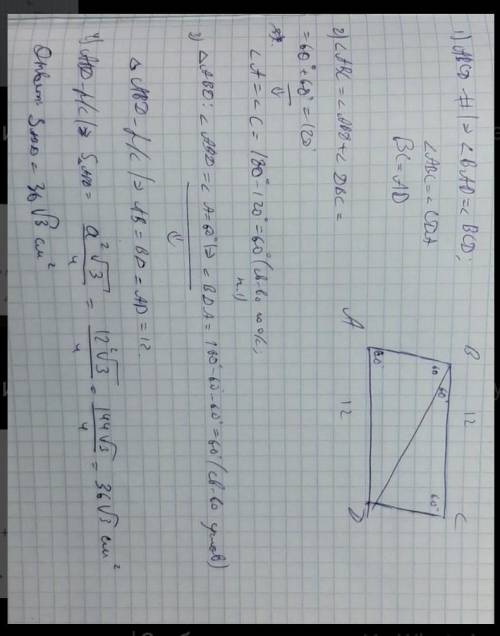 1) ABCD - # |⇒ ∠BAD = ∠BCD;
∠ABC = ∠CDA
BC = AD
2) ∠ABC = ∠ABD + ∠DBC =
= 60° + 60° = 120°
⇓
∠A = ∠C = 180° - 120° = 60° (св-во
3) △ABD: ∠ABD = ∠A = 60° |⇒ ∠BDA = 180° - 60° - 60° = 60° (св-во углов)
⇓
△ABD - р/с |⇒ AB = BD = AD = 12
4) ABD р/с |⇒ S = a²√3/4 = 12²√3/4 = 144√3/4 = 36√3 см²
Ответ: S = 36√3 см²
B 12 C
60 60° 60°
60°
A 12 D